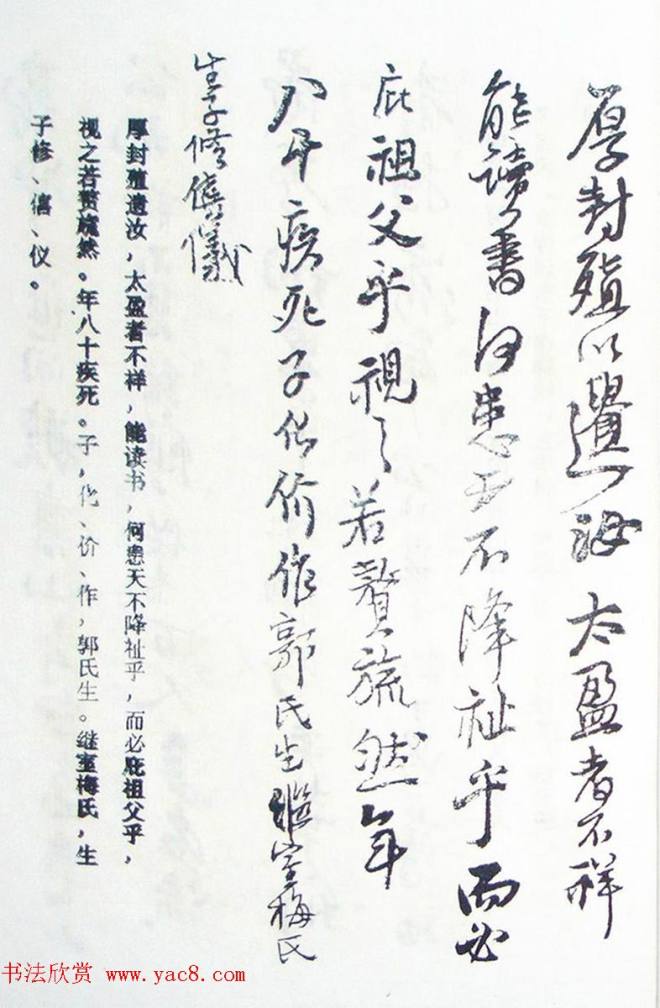 厚封殖以遺汝太盈者不祥
能讀書何患天不降祉乎而必
庇祖父乎視之若贅旒然年
八十疾死子化价作郭氏生繼室梅氏
生子修僖儀
厚封殖遗汝，太盈者不样，能读书，何患天不降祉乎，而必庇祖父乎，
视之若赘旒然。年八十疾死。子，化、价、作，郭氏生。继室梅氏，生
子修、僖、仪。
书法欣赏 www.yac8.com